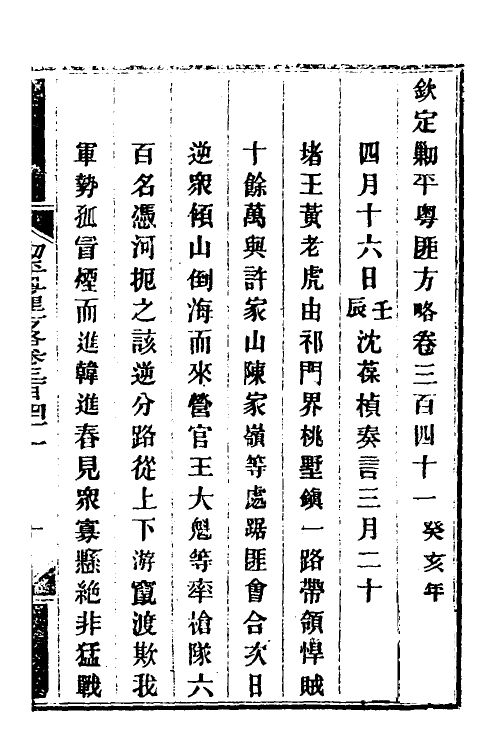 欽定剿平粵匪方略卷三百四十一 癸亥年
四月十六日壬辰沈葆楨奏言三月二十
堵王黃老虎由祁門界桃墅鎮一路帶領悍賊
十餘萬與許家山陳家嶺等處踞匪會合次日
逆衆傾山倒海而來營官王大魁等率槍隊六
百名憑河扼之該逆分路從上下游竄渡欺我
軍勢孤冒煙而進韓進春見衆寡懸絕非猛戰